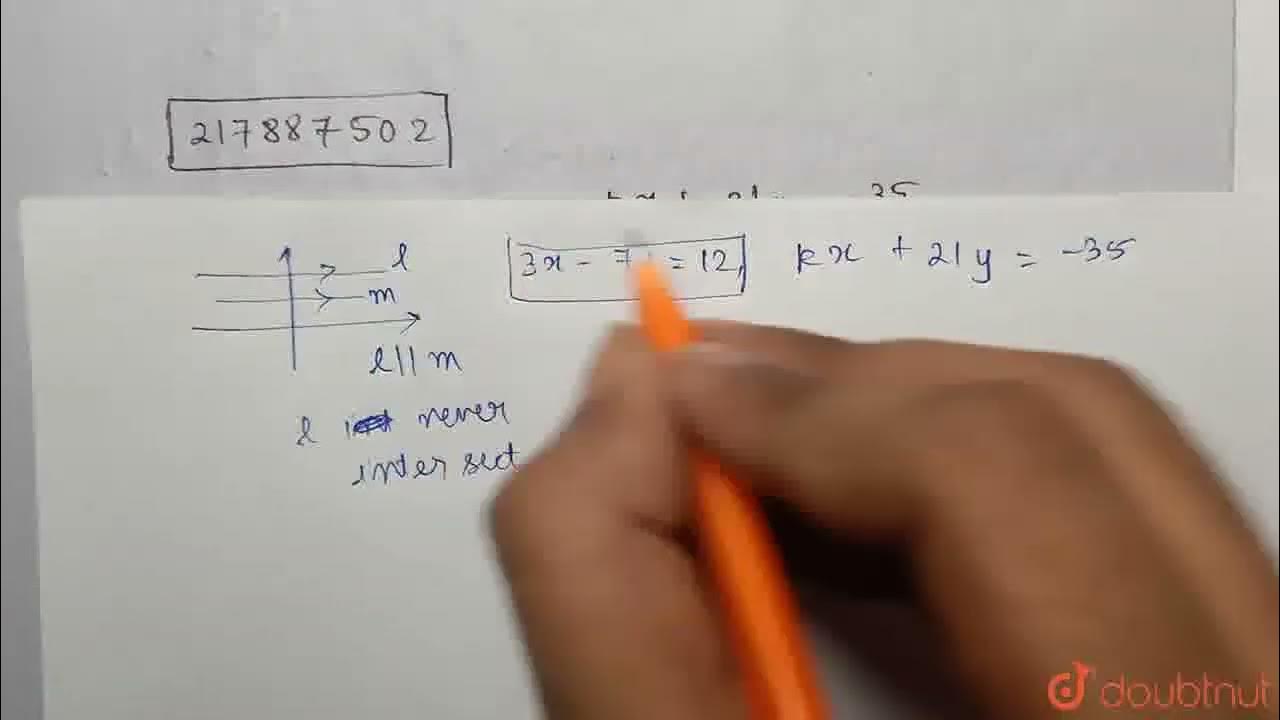 217887502
35
l
m
3x - 7 = 12,
kx + 21y = -35
l || m
l never
intersect
doubtnut